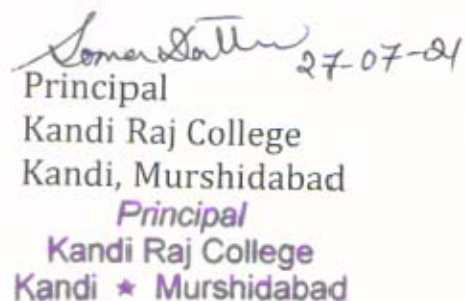 27-07-21
Principal
Kandi Raj College
Kandi, Murshidabad
Principal
Kandi Raj College
Kandi ★ Murshidabad